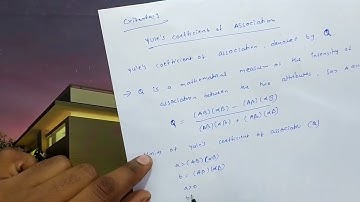 Yule's coefficient of Association
Yule's coefficient of association, denoted by Q
→ Q is a mathematical measure of the intensity of
association between the two attributes.
Q = (AB)(αβ) - (Aβ)(αB)
(AB)(αβ) + (Aβ)(αB)
of Yule's coefficient of associaton (Q)
a = (AB)(αβ)
b = (Aβ)(αB)
a>0